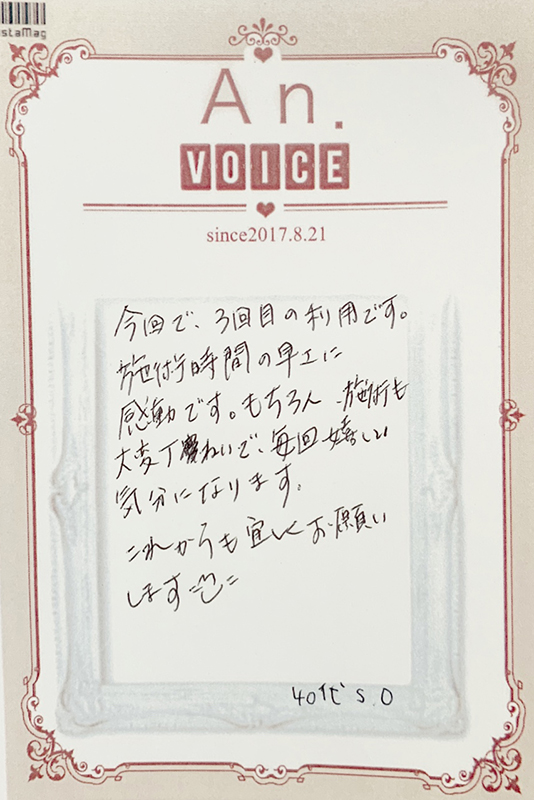 staMag
An.
VOICE
since2017.8.21
今回で、3回目の利用です。
施術時間の早さに
感動です。もちろん、施術も
大変丁寧ねいで、毎回嬉しい
気分になります。
これからも宜しくお願い
します
40代 S.O